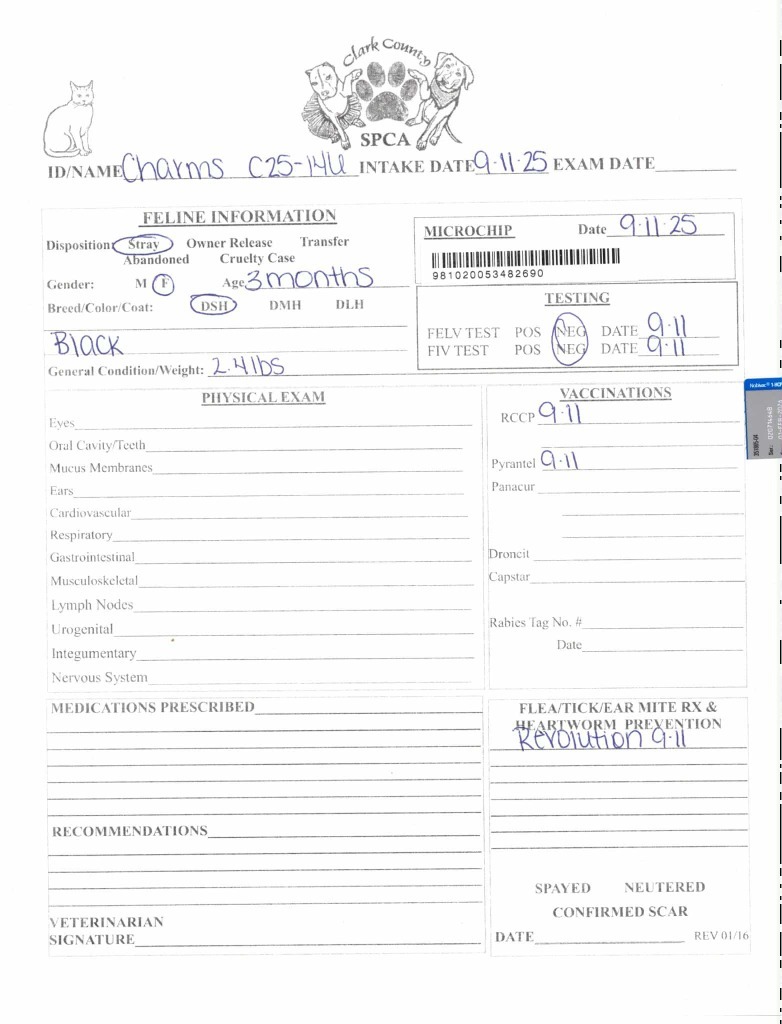 Clark County
SPCA
ID/NAME Charms C25-144 INTAKE DATE 9·11·25 EXAM DATE
FELINE INFORMATION
Disposition: Stray Owner Release Transfer
Abandoned Cruelty Case
Gender: M F Age 3 months
Breed/Color/Coat: DSH DMH DLH
Black
General Condition/Weight: 2.4 lbs
MICROCHIP Date 9·11·25
981020053482690
TESTING
FELV TEST POS NEG DATE 9·11
FIV TEST POS NEG DATE 9·11
PHYSICAL EXAM
Eyes
Oral Cavity/Teeth
Mucus Membranes
Ears
Cardiovascular
Respiratory
Gastrointestinal
Musculoskeletal
Lymph Nodes
Urogenital
Integumentary
Nervous System
VACCINATIONS
RCCP 9·11
Pyrantel 9·11
Panacur
Droncit
Capstar
Rabies Tag No. #
Date
MEDICATIONS PRESCRIBED
RECOMMENDATIONS
VETERINARIAN
SIGNATURE
FLEA/TICK/EAR MITE RX &
HEARTWORM PREVENTION
Revolution 9·11
SPAYED NEUTERED
CONFIRMED SCAR
DATE REV 01/16